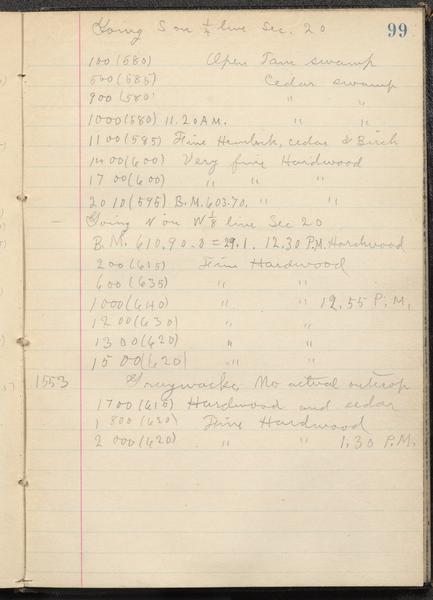 99
Going S on 1/4 line Sec. 20
100 (580) Open Tam swamp
500 (585) Cedar swamp
900 (580) " "
1000 (580) 11.20 A.M. " "
1100 (585) Fine Hemlock, cedar & Birch
1400 (600) Very fine Hardwood
1700 (600) " " "
2010 (595) B.M. 603.70. " "
— Going N on W 1/8 line Sec 20
B.M. 610.90.0 = 29.1. 12.30 P.M. Hardwood
200 (615) Fine Hardwood
600 (635) " "
1000 (640) " " 12.55 P.M.
1200 (630) " "
1300 (620) " "
1500 (620) " "
1553 Graywacke, No actual outcrop
1700 (615) Hardwood and cedar
1800 (620) Fine Hardwood
2000 (620) " " 1.30 P.M.